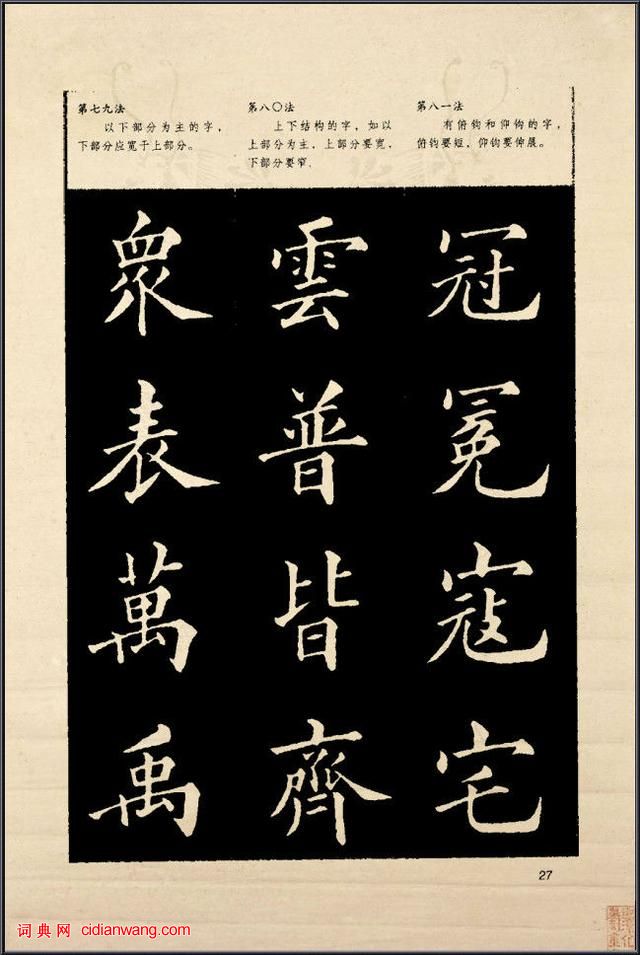 第七九法
以下部分为主的字，
下部分应宽于上部分。
第八〇法
上下结构的字，如以
上部分为主，上部分要宽，
下部分要窄。
第八一法
有俯钩和仰钩的字，
俯钩要短，仰钩要伸展。
眾 雲 冠
表 普 冕
萬 皆 寇
禹 齊 宅
27
词典网 cidianwang.com